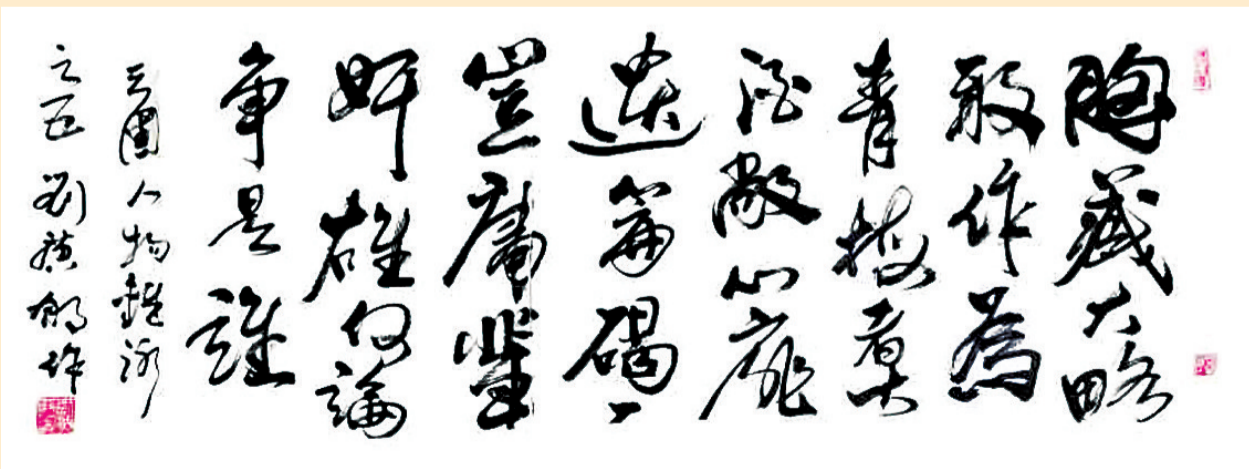 胸藏大略
敢作為
青梅煮
酒敞心扉
遺篇碣
豈庸輩
奸雄何論
争是誰
三國人物雜詠
之五 劉廣 作